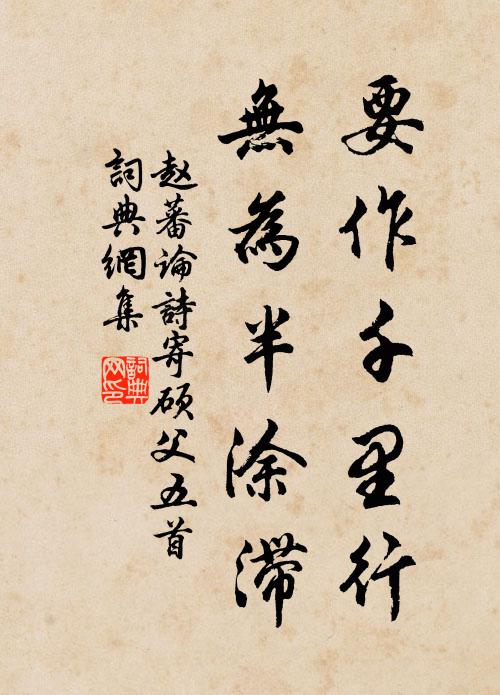 要作千里行
無為半涂滯
赵蕃论詩寄硕父五首
詞典網集
詞典网印